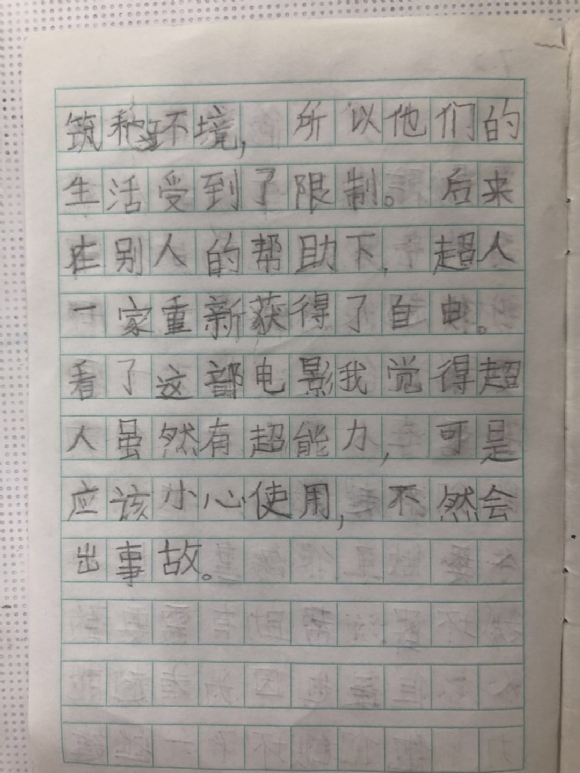 筑和环境，所以他们的
生活受到了限制。后来
在别人的帮助下，超人
一家重新获得了自由。
看了这部电影我觉得超
人虽然有超能力，可是
应该小心使用，不然会
出事故。